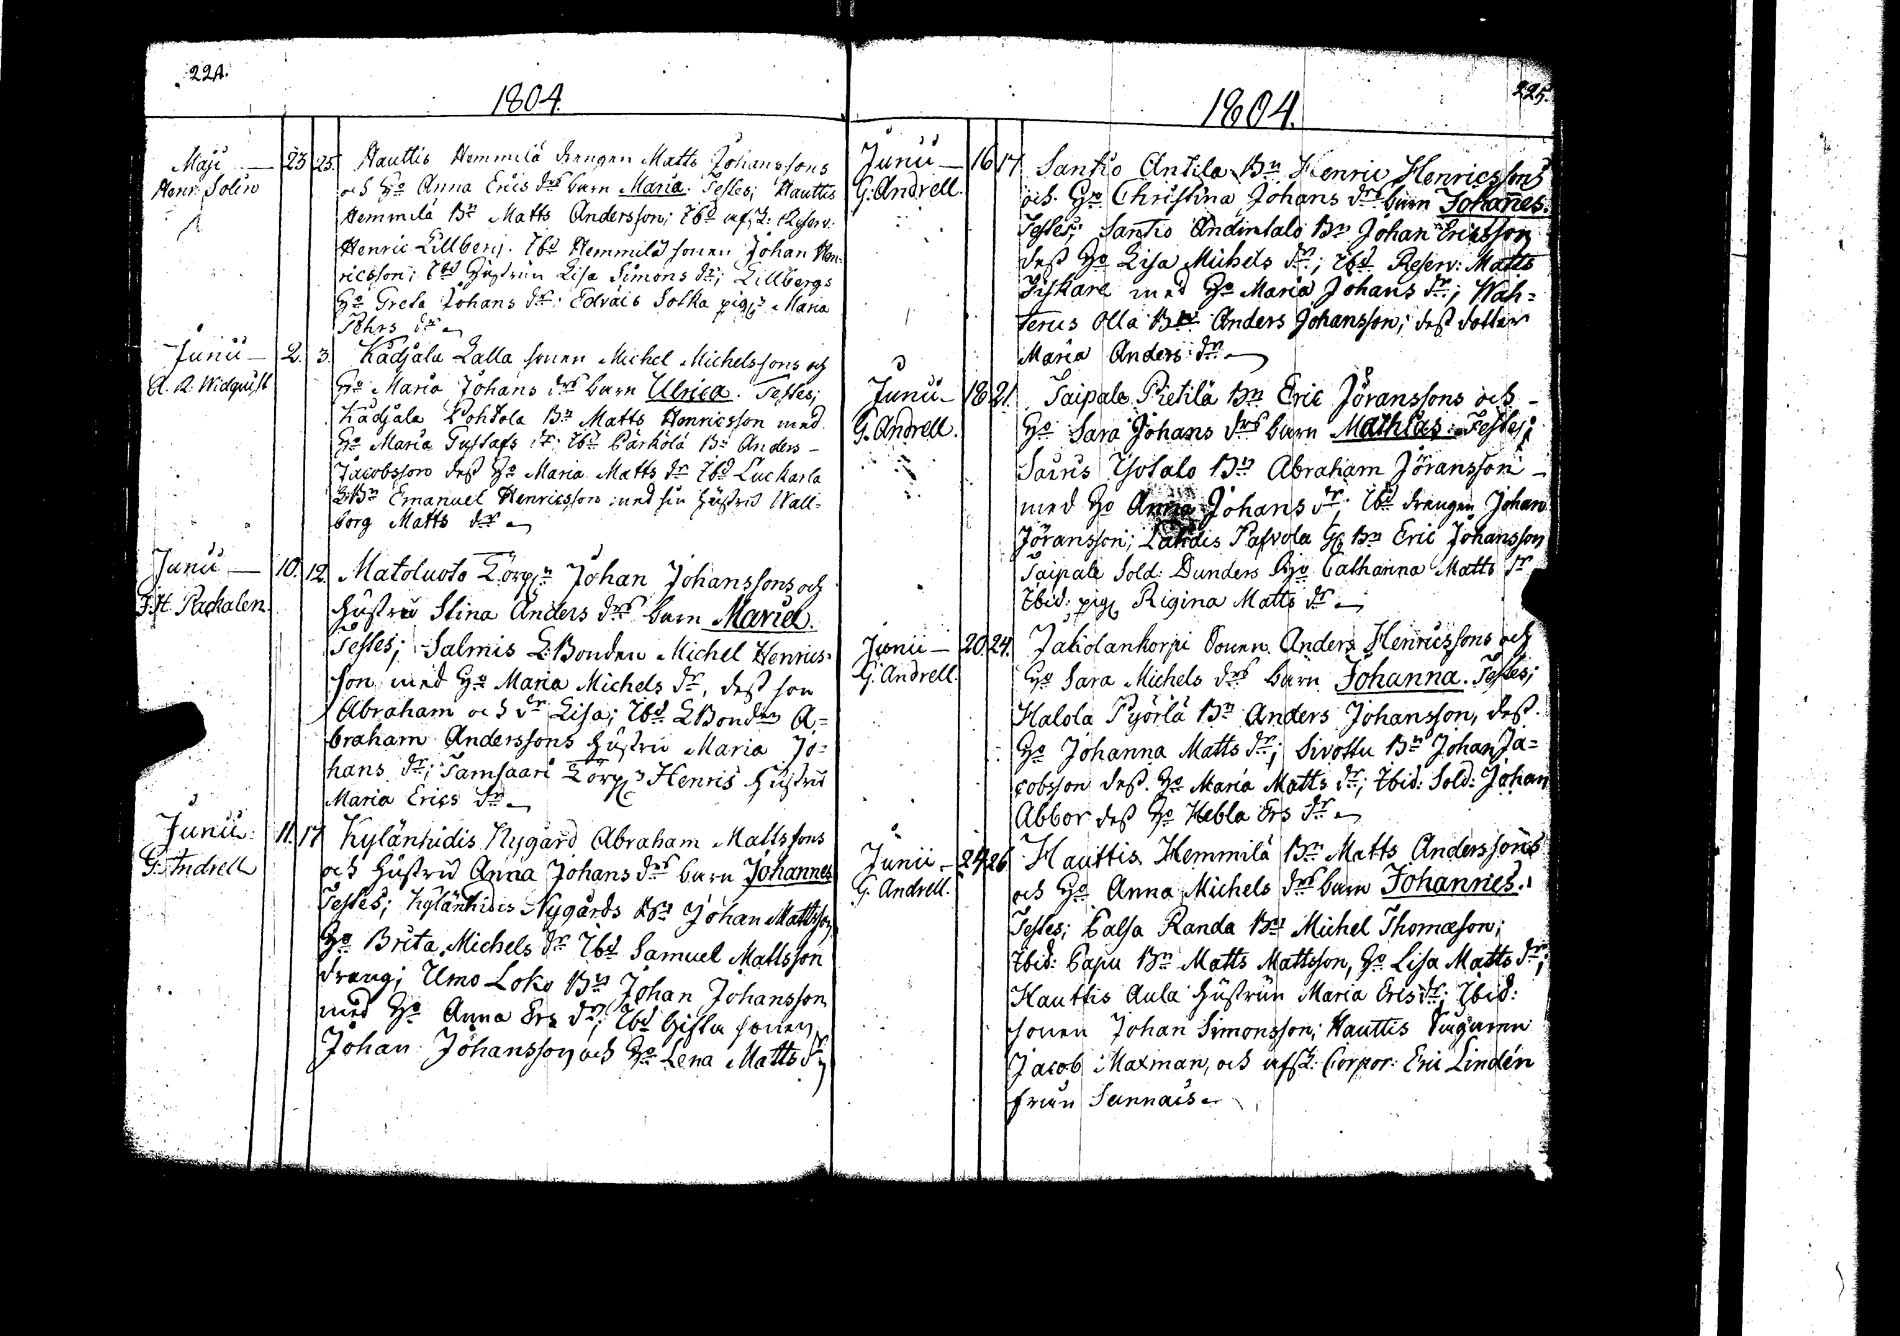 224.
1804.
Maji — 23 25. Hauttis Hemmilä drengen Matts Johanssons
Henr: Solin och Ho Anna Erics drs barn Maria. Testes; Hauttis
Hemmilä Bn Matts Andersson; Ibd afsk: Reserv:
Henric Lillberg. Ibd Hemmilä sonen Johan Hen-
ricsson; Ibd Hustrun Lisa Simons dr; Lillbergs
Ho Greta Johans dr. Edväis Sotka pig: Maria
Pehrs dr
Junii — 2. 3. Kadjala Lalla sonen Michel Michelssons och
A. A. Widquist Ho Maria Johans drs barn Ulrica. Testes;
Kadjala Pohtola Bn Matts Henricsson med
Ho Maria Gustafs dr. Ibd Pärkölä Bn Anders
Jacobsson dess Ho Maria Matts dr Ibd Luckarla
LBn Emanuel Henricsson med sin Hustru Wall-
borg Matts dr
Junii — 10. 12. Matoluoto Torp:n Johan Johanssons och
F. H. Packalen. Hustru Stina Anders drs barn Mariel.
Testes; Salmis L:Bonden Michel Henrics-
son med Ho Maria Michels dr, dess son
Abraham och dr Lisa; Ibd LBonden A=
braham Anderssons Hustru Maria Jo=
hans dr; Tamsaari Torp: Henris Hustru
Maria Erics dr
Junii: 11. 17 Kylänhidis Nygård Abraham Mattssons
G. Andrell och Hustru Anna Johans drs barn Johannes
Testes; Kylänhidis Nygårds Bn Johan Mattsson
Ho Brita Michels dr Ibd Samuel Mattsson
dräng; Umo Loko Bn Johan Johansson
med Ho Anna Ers dr; Ibd Gifta sonen
Johan Johansson och Ho Lena Matts dr
225.
1804.
Junii — 16 17. Santio Antila Bn Henric Henricssons
G. Andrell. och Ho Christina Johans drs barn Johannes.
Testes; Santio Andintalo Bn Johan Ericsson
dess Ho Lisa Michels dr; Ibd Reserv: Matts
Fiskare med Ho Maria Johans dr; Wah=
terus Olla Bn Anders Johansson; dess dotter
Maria Anders dr
Junii — 18 21. Taipale Pietilä Bn Eric Jöranssons och
G. Andrell. Ho Sara Johans drs barn Mathias. Testes;
Sairis Ysotalo Bn Abraham Jöransson
med Ho Anna Johans dr; Ibd drengen Johan
Jöransson; Lahdis Pafvola Bn Eric Johansson
Taipale Sold: Dunders Ho Catharina Matts dr
Ibid: pig: Rigina Matts dr
Junii — 20. 24. Jalidankorpi Sonen Anders Henricssons och
G. Andrell. Ho Sara Michels drs barn Johanna. Testes;
Halola Pyörlä Bn Anders Johansson, dess
Ho Johanna Matts dr; Sivottu Bn Johan Ja=
cobsson dess Ho Maria Matts dr; Ibid: Sold: Johan
Abbor dess Ho Hebla Ers dr
Junii — 24 26 Hauttis Hemmilä Bn Matts Anderssons
G. Andrell. och Ho Anna Michels drs barn Johannes.
Testes; Palsa Randa Bn Michel Thomæson;
Ibid: Papu Bn Matts Mattsson, Ho Lisa Matts dr;
Hauttis Aula Hustrun Maria Erics dr; Ibid:
sonen Johan Simonsson; Hauttis
Jacob Maxman, och afsk: Corpor: Eric Lindén
från Sannais